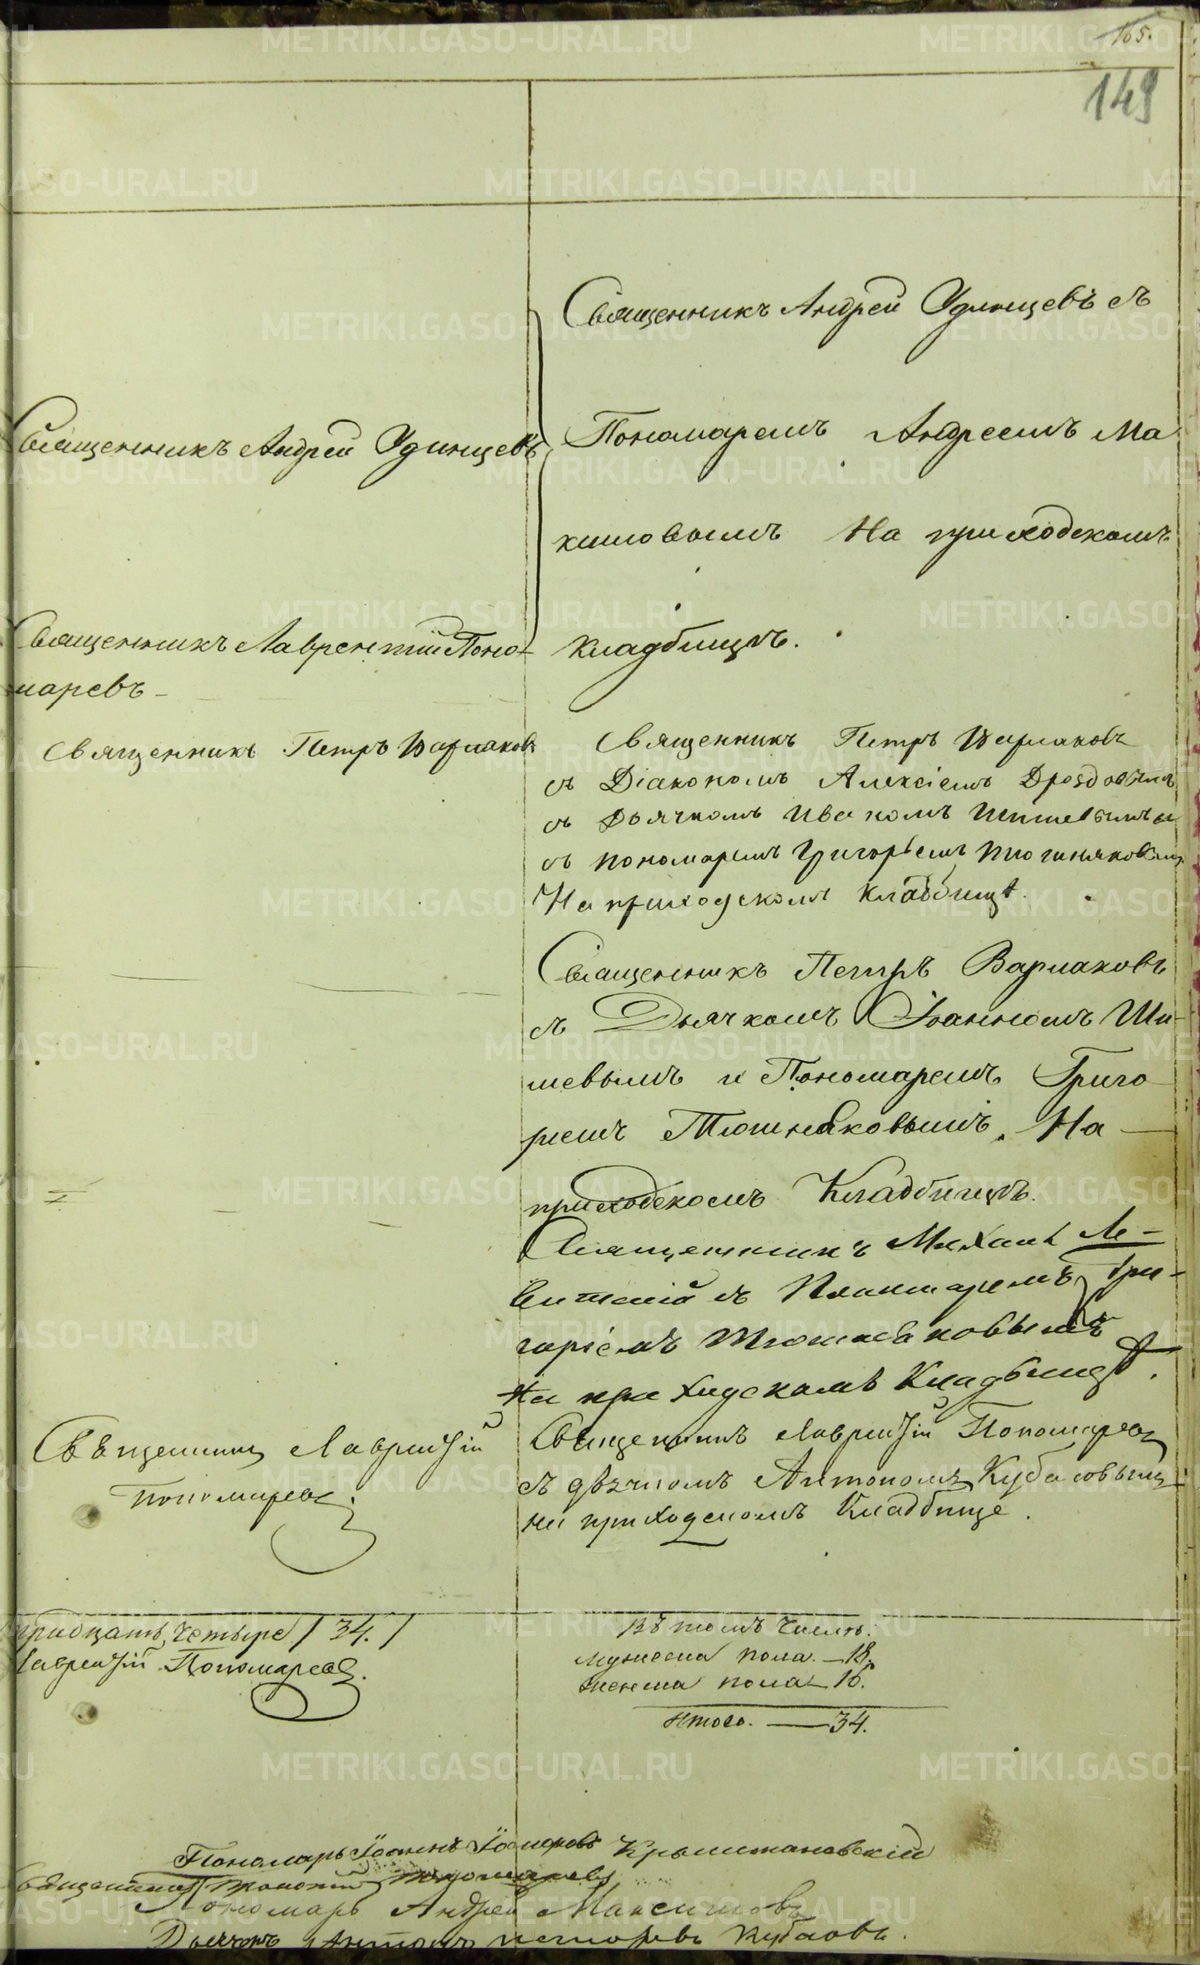 165.
149
Священникъ Андрей Удинцевъ съ
Священникъ Андрей Удинцевъ
Пономаремъ Андреемъ Ма
кимовымъ На приходскомъ
Священникъ Лаврентий Поно-
маревъ
кладбищѣ.
Священникъ Петръ Варлаковъ
Священникъ Петръ Варлаковъ
съ Діакономъ Алексіемъ Дроздовымъ
съ Дьячкомъ Иваномъ Шишевымъ и
съ пономаремъ Григорьемъ Тюшняковымъ
На приходскомъ кладбищѣ.
Священникъ Петръ Варлаковъ
съ Дьячкомъ Іоанномъ Ши-
шевымъ и Пономаремъ Григо
рiемъ Тюшняковымъ. На
приходскомъ Кладбищѣ.
Священникъ Михаилъ Ле-
витскій съ Пономаремъ Гри-
горіемъ Тюшняковымъ
На приходскомъ Кладбищѣ.
Священникъ Лаврентій
Пономаревъ.
Священникъ Лаврентій Пономаревъ
съ дьячкомъ Антономъ Кубасовымъ
на приходскомъ Кладбище.
тридцать четыре / 34. /
Лаврентій Пономаревъ.
Въ томъ числѣ.
Мужеска пола. — 18.
женска пола — 16.
Итого. — 34.
Пономарь Іоаннъ Крыштановскій
Священникъ Пономаревъ
Пономарь Андрей Максимовъ
Дьячекъ Антонъ
METRIKI.GASO-URAL.RU